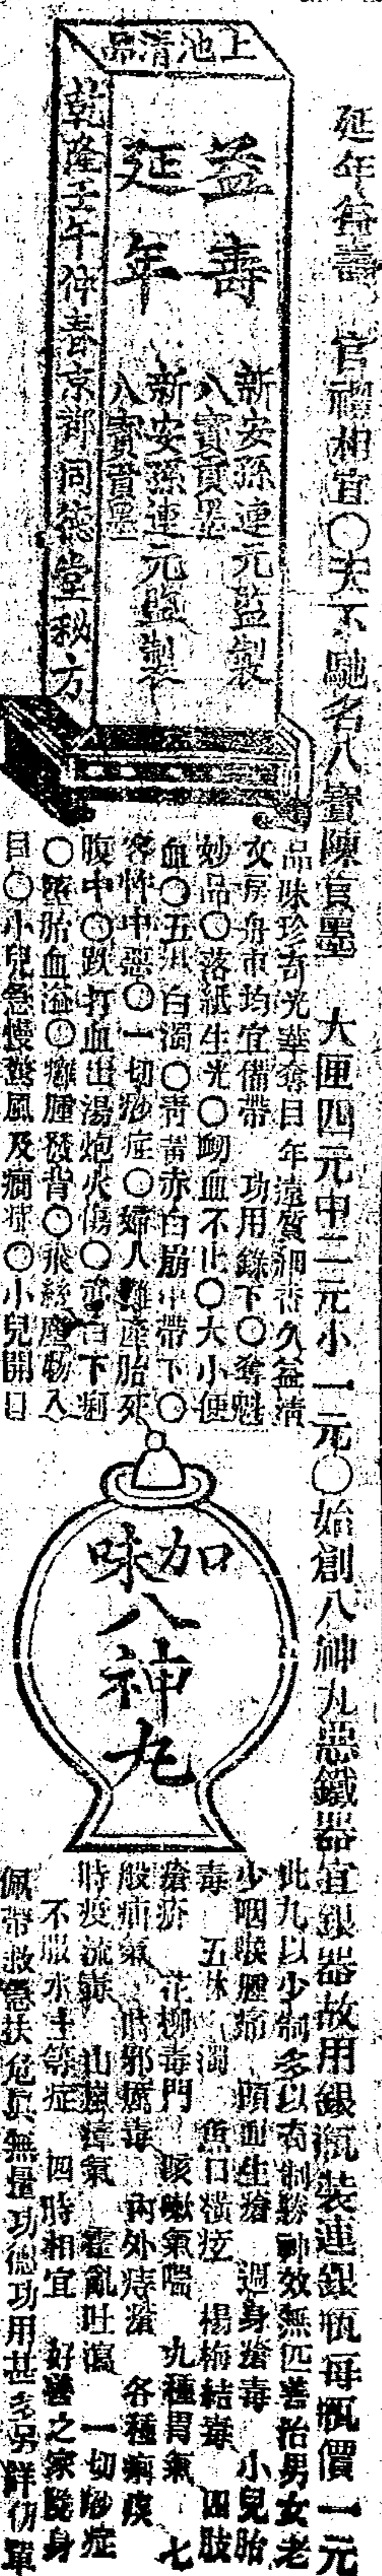 延年益壽 官禮相宜〇天下馳名八寶陳貢墨 大匣四元中二元小一元〇始創八神丸惡鐵器宜銀器故用銀瓶裝連銀瓶每瓶價一元
上池清品
益壽
延年
新安孫連元監製
八寶貢墨
新安孫連元監製
八寶貢墨
乾隆壬午仲春京都同德堂秘方
品味珍奇光華奪目年遠質細香久益清
文房舟車均宜備帶 功用錄下〇奪魁
妙品〇落紙生光〇衂血不止〇大小便
血〇五淋白濁〇青黃赤白崩中帶下〇
客忤中惡〇一切痧症〇婦人難產胎死
腹中〇跌打血出湯炮火傷〇赤白下痢
〇墮胎血溢〇癰腫發背〇飛絲塵物入
目〇小兒急慢驚風及癇症〇小兒開口
加味
八神丸
此丸以少制多以有制勝神效無匹善治男女老
少咽喉腫痛 頭面生瘡 週身瘡毒 小兒胎
毒 五淋白濁 魚口橫痃 楊梅結毒 四肢
瘡疥 花柳毒門 咳嗽氣喘 九種胃氣 七
般疝氣 時邪厲毒 內外痔瘡 各種痢疾
時疫流毒 山嵐瘴氣 霍亂吐瀉 一切痧症
不服水土等症 四時相宜 好善之家隨身
佩帶救急扶危眞無量功德功用甚多另詳仿單